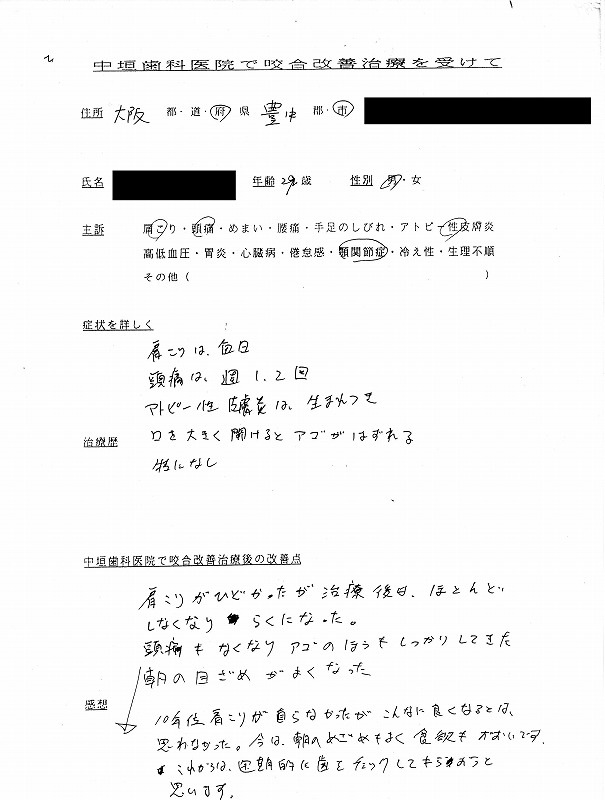 中垣歯科医院で咬合改善治療を受けて
住所 大阪 都・道・府・県 豊中 郡・市
氏名 年齢 29歳 性別 男・女
主訴 肩こり・頭痛・めまい・腰痛・手足のしびれ・アトピー性皮膚炎
高低血圧・胃炎・心臓病・倦怠感・顎関節症・冷え性・生理不順
その他( )
症状を詳しく
肩こりは、毎日
頭痛は、週1、2回
アトピー性皮膚炎は、生まれつき
口を大きく開けるとアゴがはずれる
治療歴
特になし
中垣歯科医院で咬合改善治療後の改善点
肩こりがひどかったが治療後は、ほとんど
しなくなり らくになった。
頭痛もなくなりアゴのほうもしっかりしてきた
朝の目ざめがよくなった
感想
10年位肩こりが直らなかったがこんなに良くなるとは、
思わなかった。今は、朝のめざめもよく食欲もおおいです。
これからは、定期的に歯をチェックしてもらおうと
思います。